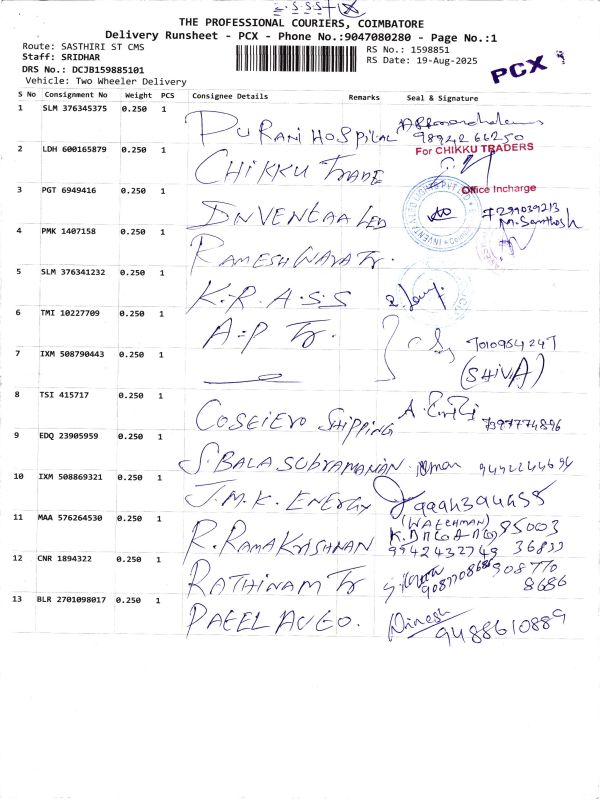 THE PROFESSIONAL COURIERS, COIMBATORE
Delivery Runsheet - PCX - Phone No.:9047080280 - Page No.:1
Route: SASTHIRI ST CMS
RS No.: 1598851
Staff: SRIDHAR
RS Date: 19-Aug-2025
DRS No.: DCJB159885101
PCX
Vehicle: Two Wheeler Delivery
S No Consignment No Weight PCS Consignee Details Remarks Seal & Signature
1 SLM 376345375 0.250 1 PURANI HOSPILAL
9894266250
2 LDH 600165879 0.250 1 CHIKKU TRADE
For CHIKKU TRADERS
Office Incharge
3 PGT 6949416 0.250 1 INVENTAA LTD
7299039213
M. Santhosh
4 PMK 1407158 0.250 1 RAMESH Tr.
5 SLM 376341232 0.250 1 K.R.A.S.S
6 TMI 10227709 0.250 1 A.P Tr.
7010954247
7 IXM 508790443 0.250 1
(SHIVA)
8 TSI 415717 0.250 1 SHIPPING
9 EDQ 23905959 0.250 1 S. BALA SUBRAMANIAN
9442244694
10 IXM 508869321 0.250 1 J.M.K. ENERGY
(WATCHMAN)
11 MAA 576264530 0.250 1 R. RAMAKRISHNAN
95003
9942432749 36833
12 CNR 1894322 0.250 1 RATHINAM Tr
9087708686 908770
8686
13 BLR 2701098017 0.250 1 PATEL AUTO.
Dinesh
9488610889